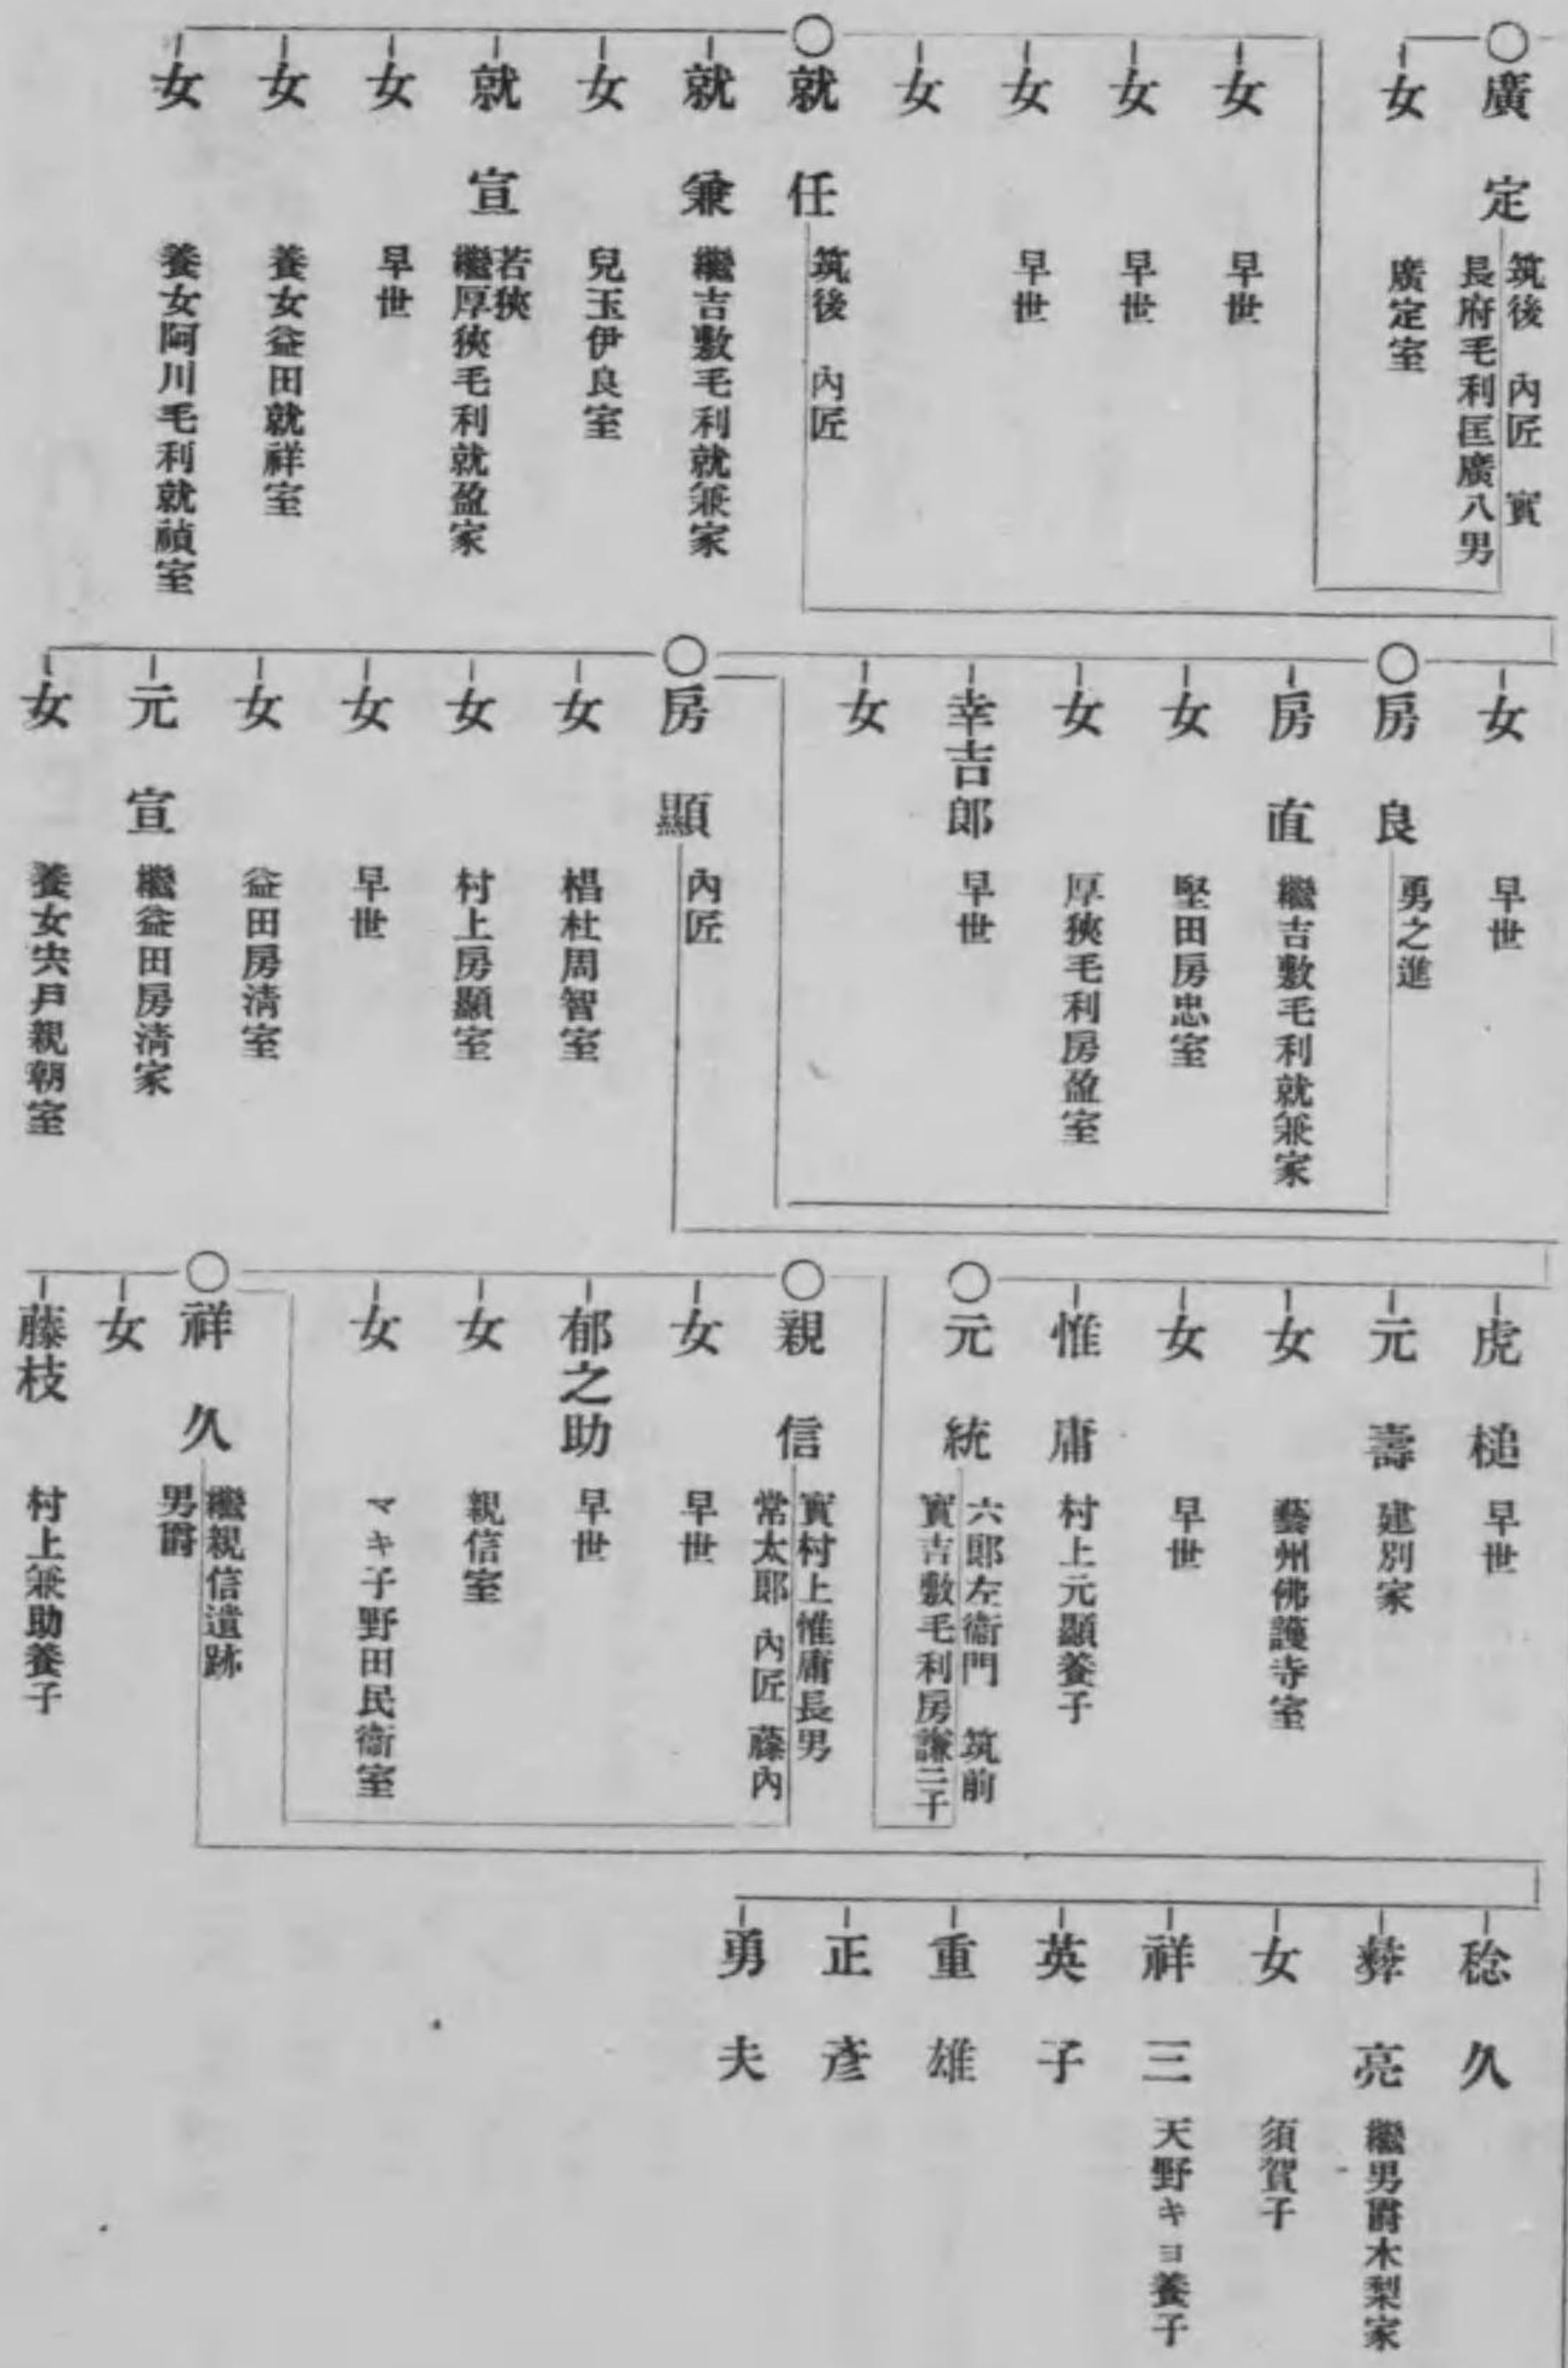 廣定 筑後 內匠 實
長府毛利匡廣八男
女 廣定室
女 早世
女 早世
女 早世
女
就任 筑後 內匠
就兼 繼吉敷毛利就兼家
女 兒玉伊良室
就宣 若狹
繼厚狹毛利就盈家
女 早世
女 養女益田就祥室
女 養女阿川毛利就禎室
女 早世
房良 勇之進
房直 繼吉敷毛利就兼家
女 堅田房忠室
女 厚狹毛利房盈室
幸吉郎 早世
女
房顯 內匠
女 椙杜周智室
女 村上房顯室
女 早世
女 益田房清室
元宣 繼益田房清家
女 養女宍戶親朝室
虎槌 早世
元壽 建別家
女 藝州佛護寺室
女 早世
惟庸 村上元顯養子
元統 六郎左衞門 筑前
實吉敷毛利房謙二子
親信 實村上惟庸長男
常太郎 內匠 藤內
女 早世
郁之助 早世
女 親信室
女 マキ子野田民衞室
祥久 繼親信遺跡
男爵
女
藤枝 村上兼助養子
稔久
彜亮 繼男爵木梨家
女 須賀子
祥三 天野キヨ養子
英子
重雄
正彥
勇夫